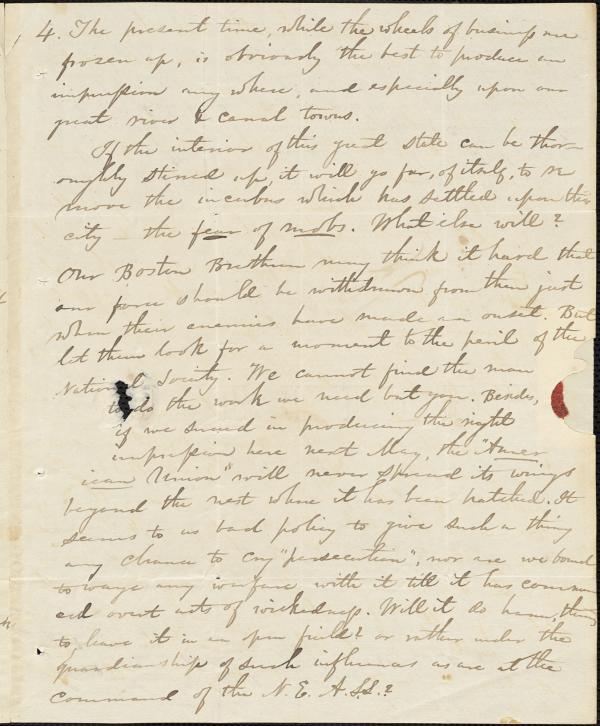 4. The present time, while the wheels of business are
frozen up, is obviously the best to produce an
impression any where, and especially upon our
great river & canal towns.
If the interior of this great state can be thor-
oughly stirred up, it will go far, of itself, to re
move the incubus which has settled upon this
city — the fear of mobs. What else will?
Our Boston Brethren may think it hard that
our force should be withdrawn from them just
when their enemies have made an onset. But
let them look for a moment to the peril of the
National Society. We cannot find the man
to do the work we need but you. Besides,
if we succeed in producing the right
impression here next May, the "Amer
ican Union" will never spread its wings
beyond the nest where it has been hatched. It
seems to us bad policy to give such a thing
any chance to cry "persecution", nor are we bound
to wage any warfare with it till it has commen
ced overt acts of wickedness. Will it do harm, then,
to leave it in an open field? or rather under the
guardianship of such influences as are at the
command of the N. E. A. S. S.?